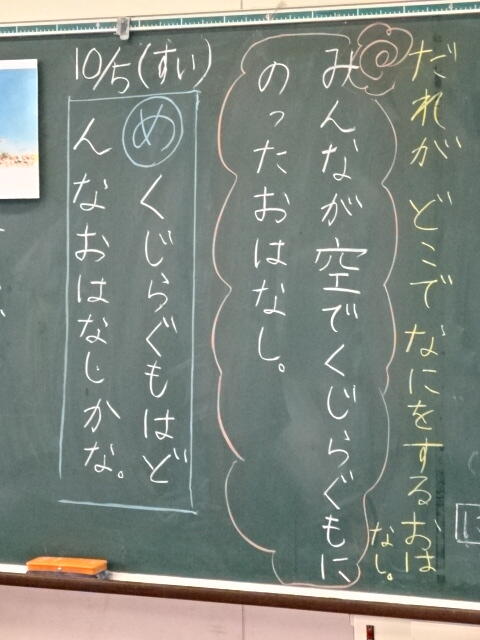 だれが どこで なにをするおは
なし。
みんなが空でくじらぐもに
のったおはなし。
10/5(すい)
め くじらぐもはど
んなおはなしかな。